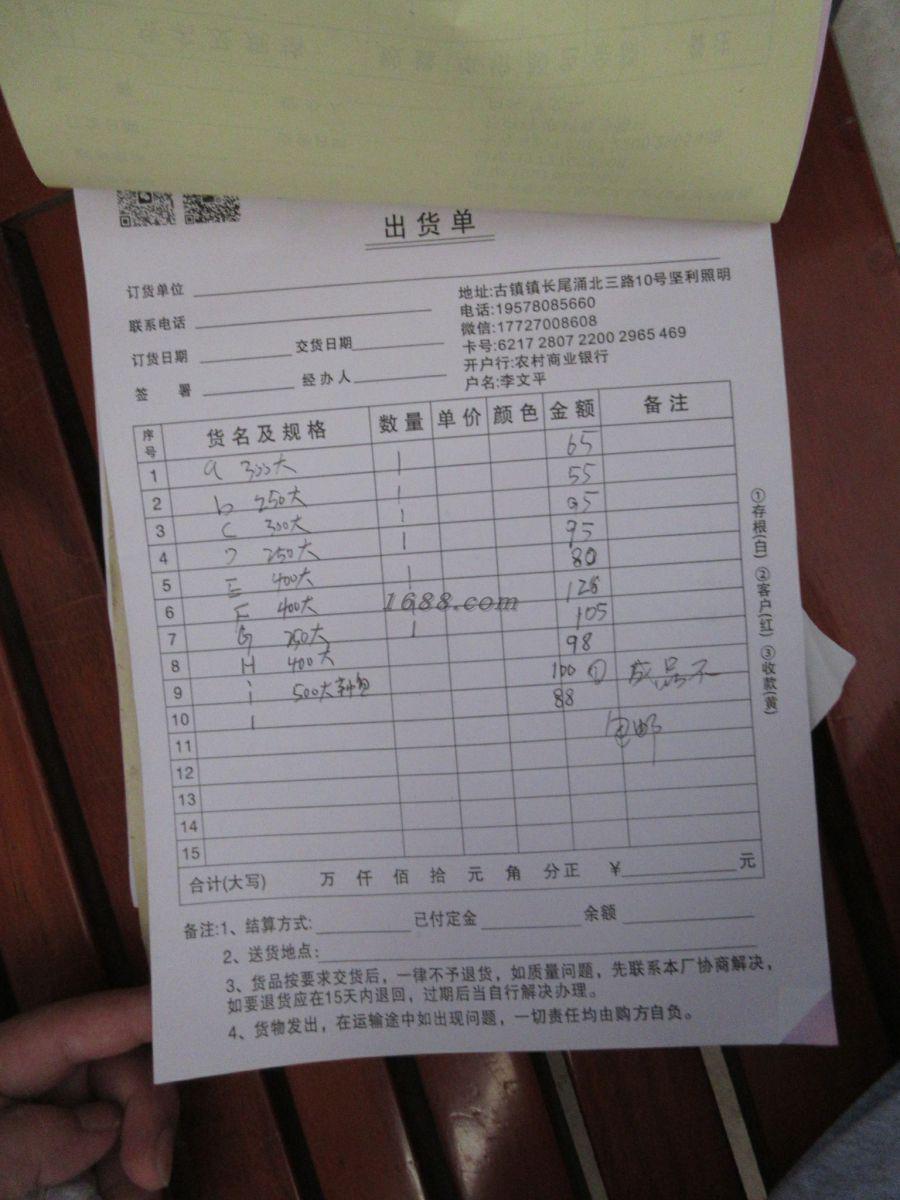 出货单
订货单位
地址:古镇镇长尾涌北三路10号坚利照明
联系电话
电话:19578085660
微信:17727008608
订货日期 交货日期
卡号:6217 2807 2200 2965 469
开户行:农村商业银行
签 署 经办人
户名:李文平
序号 货名及规格 数量 单价 颜色 金额 备注
1 a 300大 1 65
2 b 250大 1 55
3 C 300大 1 95
4 250大 1 95
5 E 400大 1 80
6 F 400大 128
1688.com
7 G 250大 1 105
8 H 400大 98
9 i 500大 100 成品不
10 88
包邮
11
12
13
14
15
合计(大写) 万 仟 佰 拾 元 角 分正 ¥ 元
①存根(白) ②客户(红) ③收款(黄)
备注:1、结算方式: 已付定金 余额
2、送货地点:
3、货品按要求交货后，一律不予退货，如质量问题，先联系本厂协商解决，
如要退货应在15天内退回，过期后当自行解决办理。
4、货物发出，在运输途中如出现问题，一切责任均由购方自负。